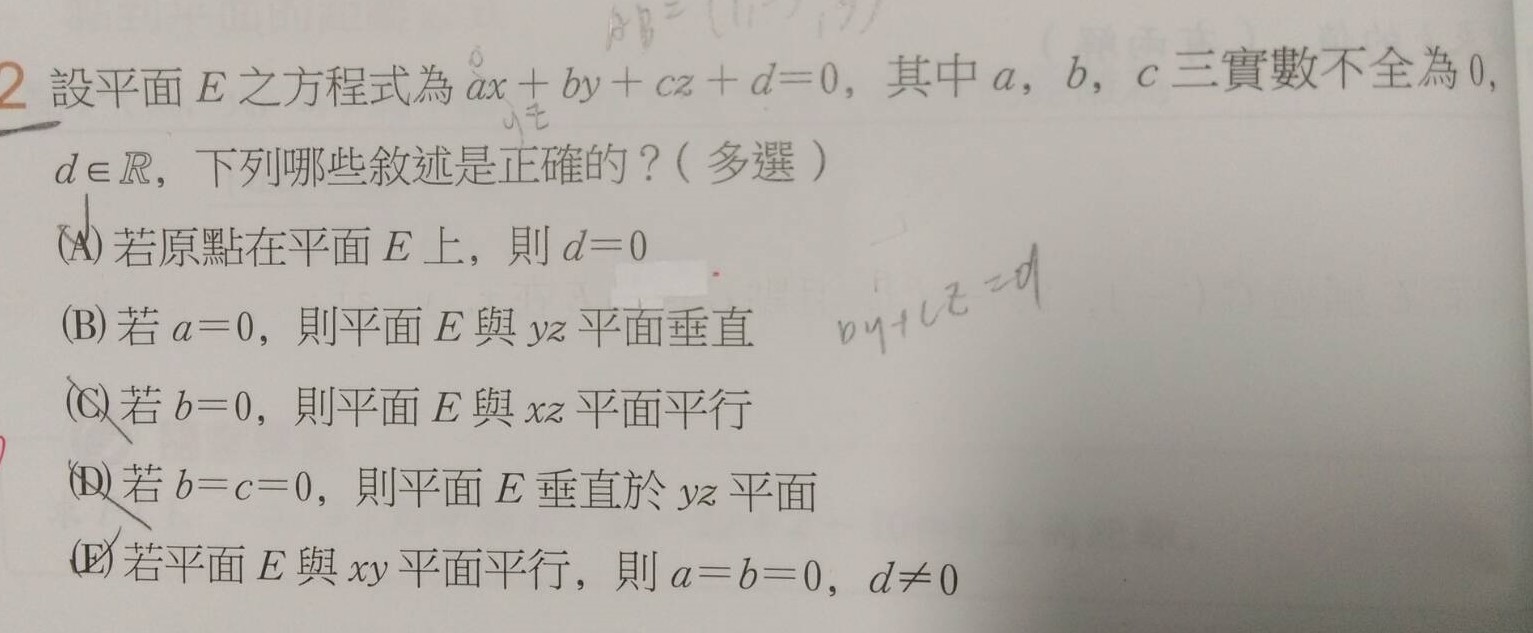 AB = (1,
2 設平面 E 之方程式為 ax + by + cz + d=0, 其中 a, b, c 三實數不全為0,
0
yz
d∈ℝ, 下列哪些敘述是正確的?(多選)
(A) 若原點在平面 E 上, 則 d=0
(B) 若 a=0, 則平面 E 與 yz 平面垂直
by+cz=d
(C) 若 b=0, 則平面 E 與 xz 平面平行
(D) 若 b=c=0, 則平面 E 垂直於 yz 平面
(E) 若平面 E 與 xy 平面平行, 則 a=b=0, d≠0